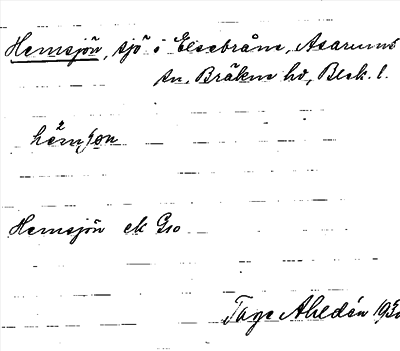 Hemsjön, sjö i Elsebråne, Asarums
sn, Bräkne hd, Blek. l.
Hemsjön ek G10
Tage Ahldén 193